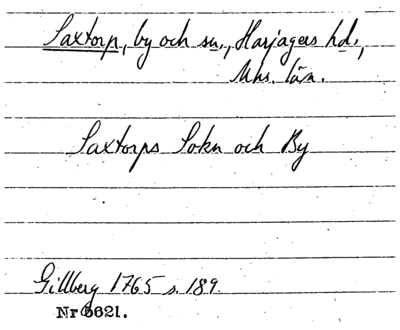 Saxtorp, by och sn., Harjagers hd.,
Mhs. län.
Saxtorps Sokn och By
Gillberg 1765 s. 189.
Nr 6621.